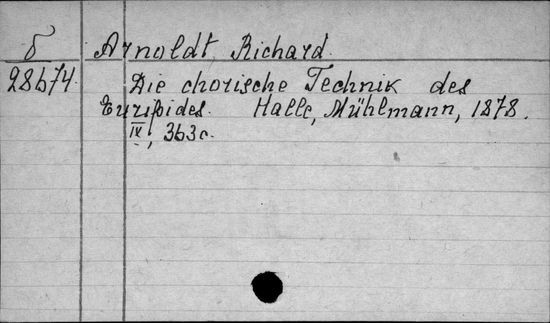 δ Arnoldt, Richard.
28674. Die chorische Technik des
Euripides. Halle, Mühlmann, 1878.
IV, 363 c.